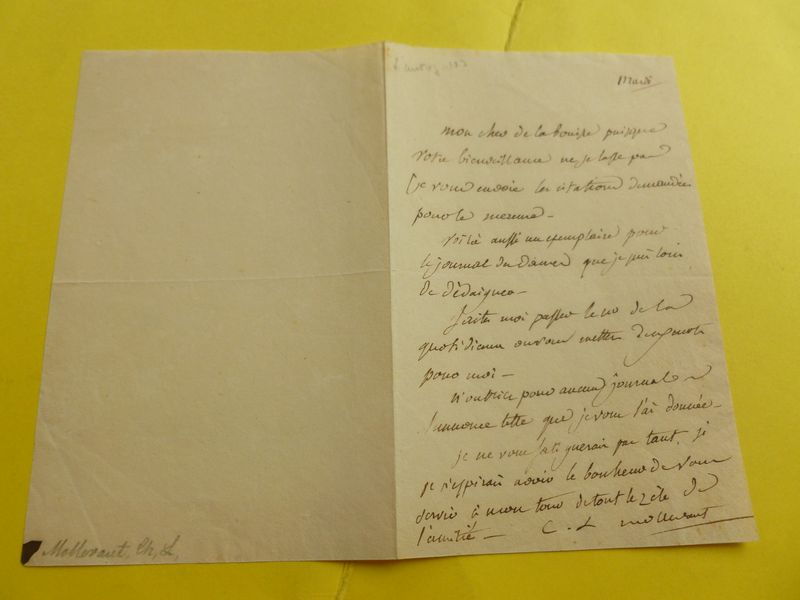 Mardi
mon cher de la bouisse puisque
votre bienveillance ne se lasse pas
je vous envoie les citations demandées
pour le mercure –
voilà aussi un exemplaire pour
le journal des dames que je suis loin
de dédaigner –
faites moi passer le no de la
quotidienne où vous mettrez
pour moi –
n'oubliez pour aucun journal
l'annonce telle que je vous l'ai donnée –
je ne vous fatiguerais pas tant, si
je n'espérais avoir le bonheur de vous
servir à mon tour de tout le zèle de
l'amitié – C. L. mollevaut
Mollevaut. Ch, L,